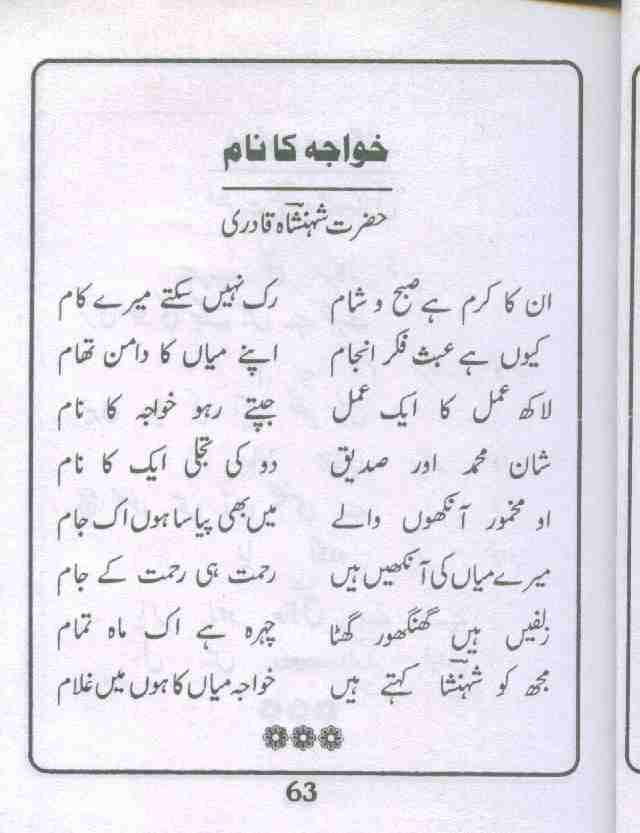 خواجہ کا نام
حضرت شہنشاہ قادری
ان کا کرم ہے صبح و شام رک نہیں سکتے میرے کام
کیوں ہے عبث فکر انجام اپنے میاں کا دامن تھام
لاکھ عمل کا ایک عمل جپتے رہو خواجہ کا نام
شان محمد اور صدیق دو کی تجلی ایک کا نام
او مخمور آنکھوں والے میں بھی پیاسا ہوں اک جام
میرے میاں کی آنکھیں ہیں رحمت ہی رحمت کے جام
زلفیں ہیں گھنگھور گھٹا چہرہ ہے اک ماہ تمام
مجھ کو شہنشا کہتے ہیں خواجہ میاں کا ہوں میں غلام
63